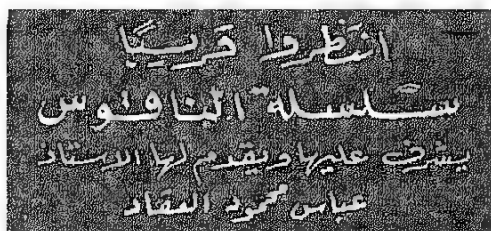 انتظروا قريبًا
سلسلة الينافوس
يشرف عليها ويقدم لها الاستاذ
عباس محمود العقاد